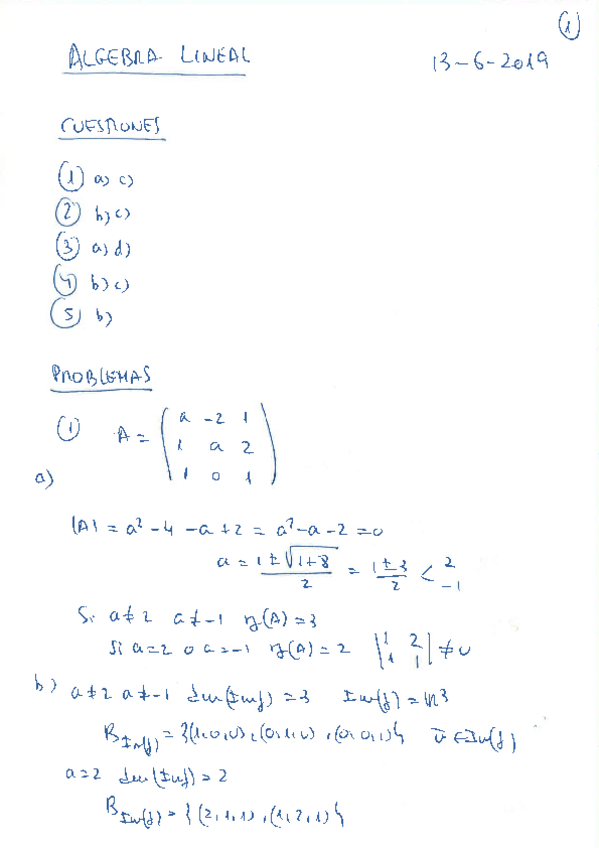 1
ALGEBRA LINEAL
13-6-2019
CUESTIONES
1 a) c)
2 b) c)
3 a) d)
4 b) c)
5 b)
PROBLEMAS
1 A = ( a -2 1
1 a 2
1 0 1 )
a)
|A| = a² - 4 - a + 2 = a² - a - 2 = 0
a = 1 ± √1+8 / 2 = 1 ± 3 / 2 < 2 -1
Si a ≠ 2 a ≠ -1 rg(A) = 3
Si a = 2 o a = -1 rg(A) = 2 | 1 2 1 1 | ≠ 0
b) a ≠ 2 a ≠ -1 dim(Imf) = 3 Im(f) = ℝ³
B Im(f) = {(1,0,0), (0,1,0), (0,0,1)} v̄ ∈ Im(f)
a = 2 dim(Imf) = 2
B Im(f) = {(2,1,1), (1,2,1)}